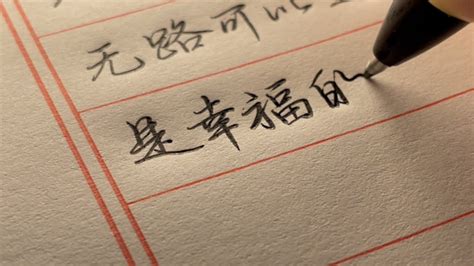 无路可以
是幸福的